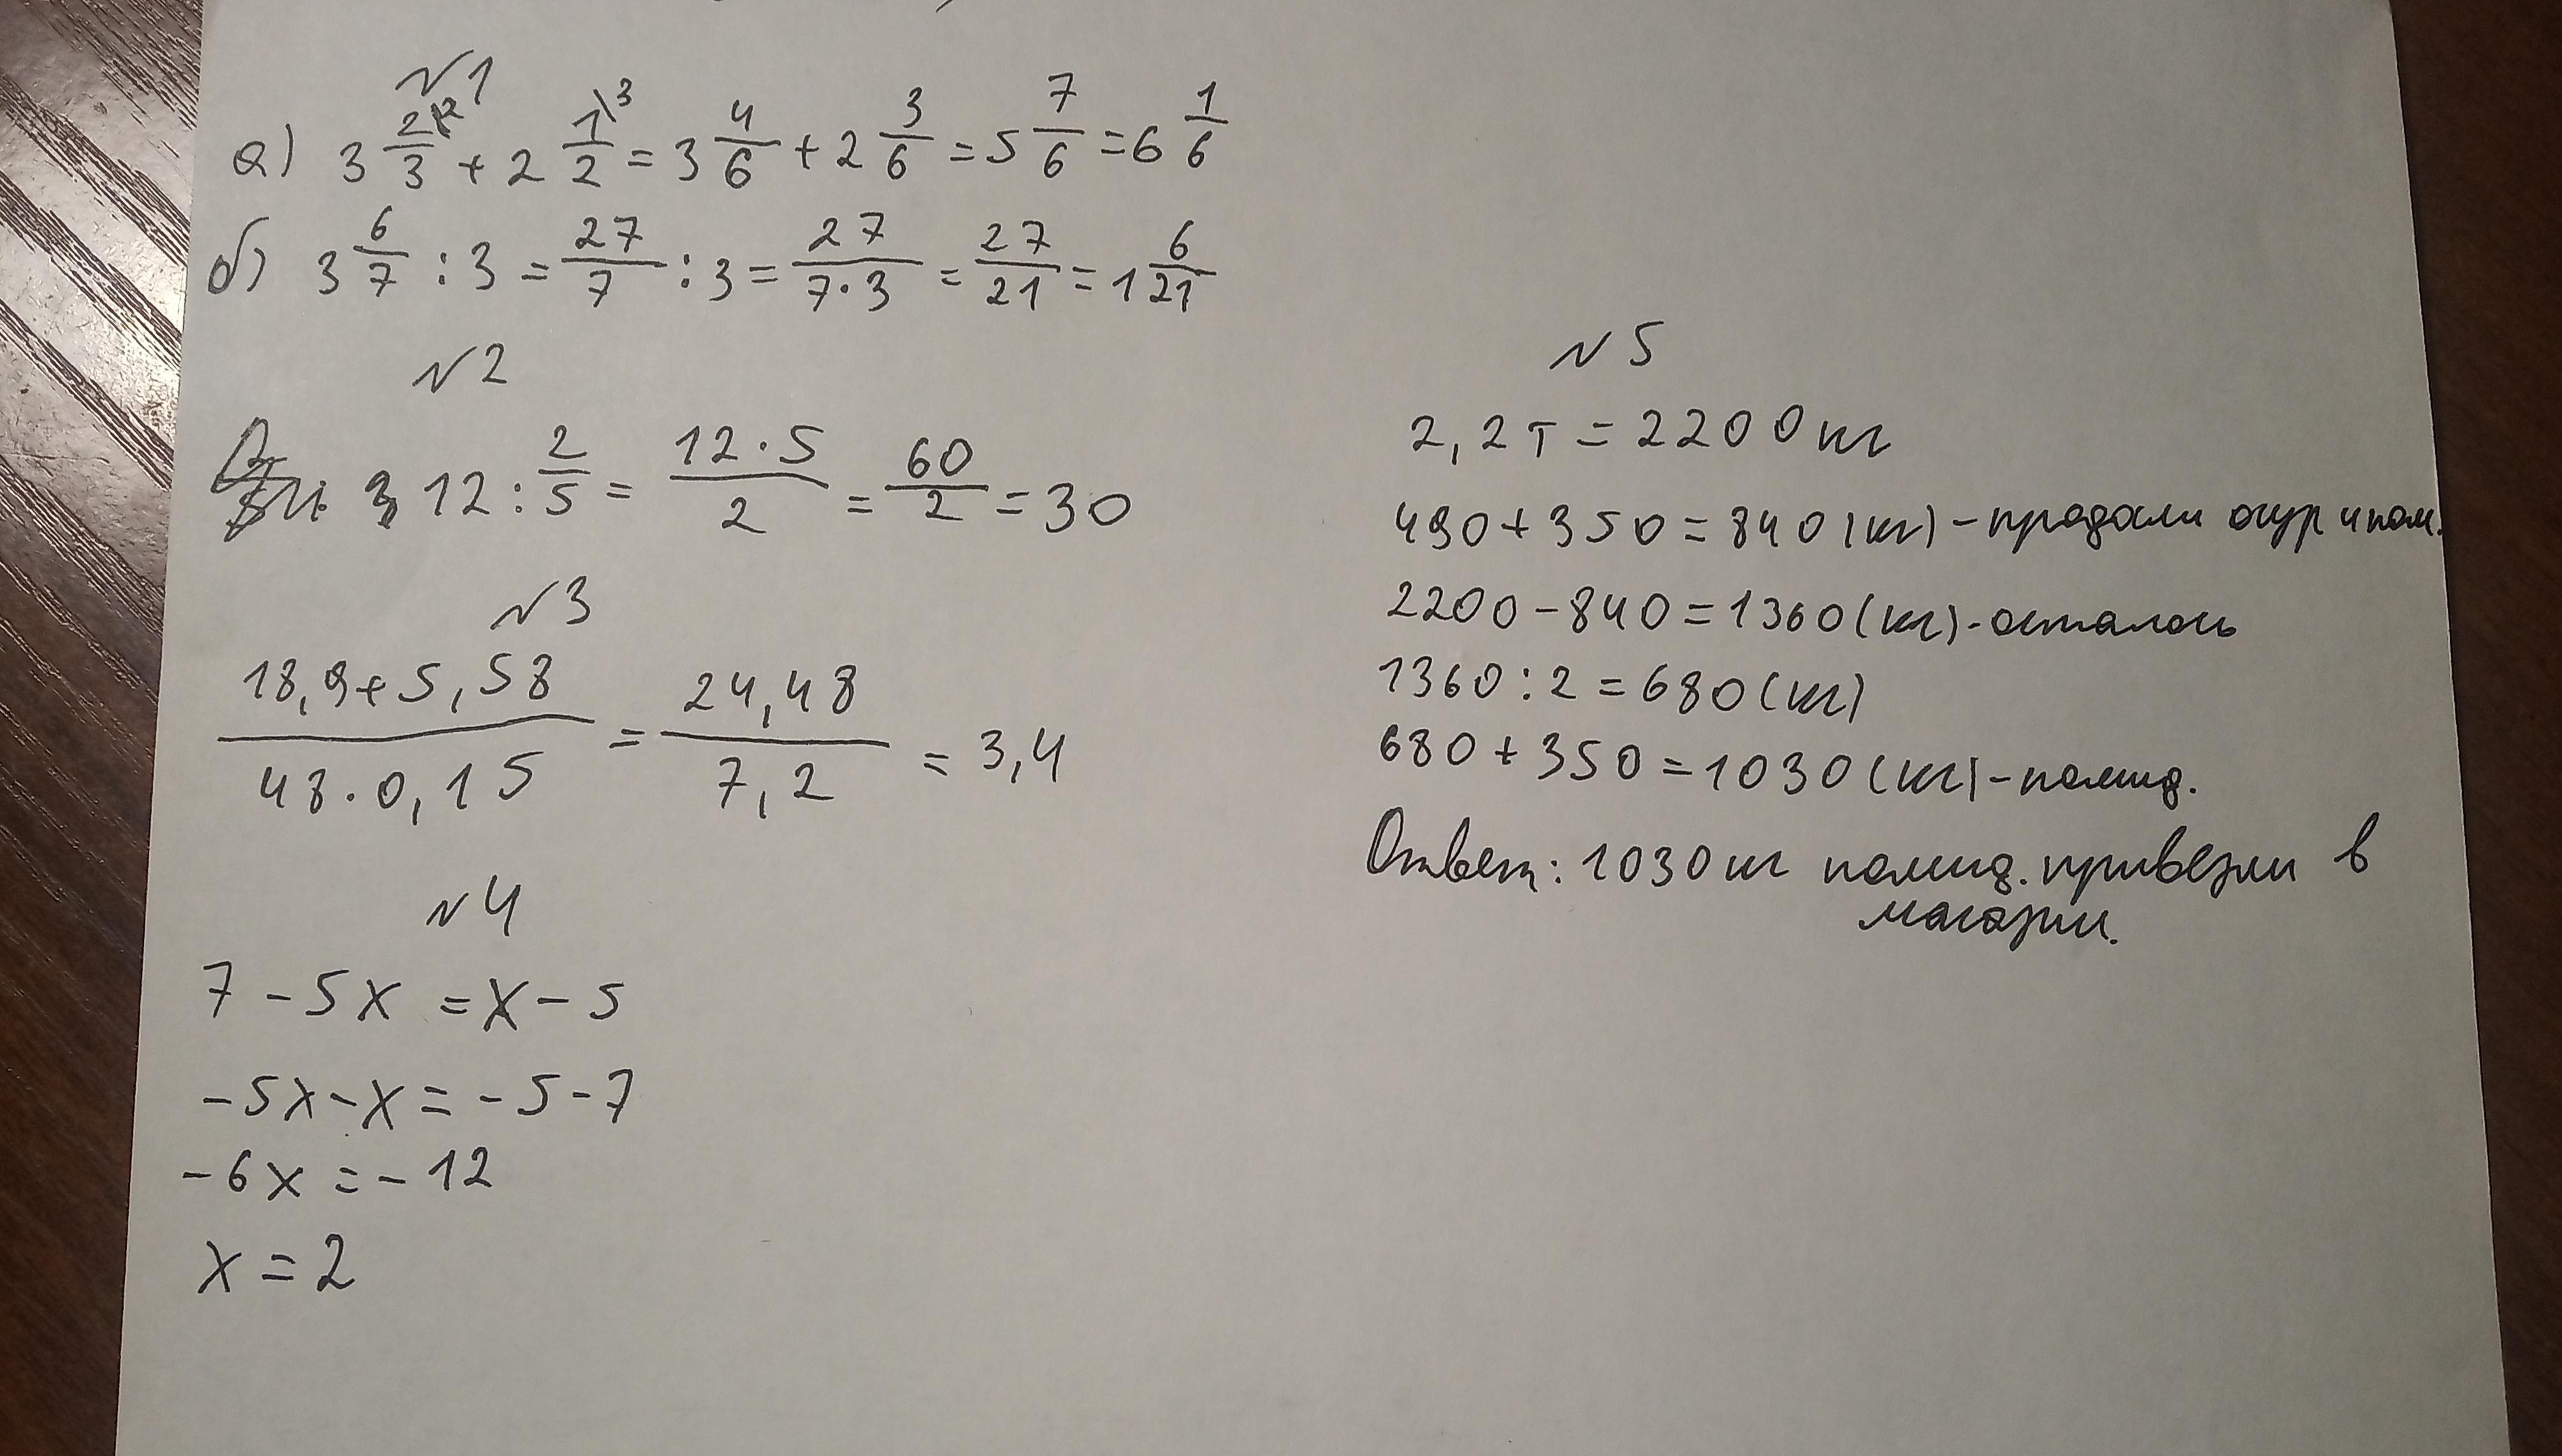 №1
а) 3 2/3 \2 + 2 1/2 \3 = 3 4/6 + 2 3/6 = 5 7/6 = 6 1/6
б) 3 6/7 : 3 = 27/7 : 3 = 27/7·3 = 27/21 = 1 6/21
№2
12 : 2/5 = 12·5/2 = 60/2 = 30
№3
18,9+5,58/48·0,15 = 24,48/7,2 = 3,4
№4
7 - 5x = x - 5
-5x - x = -5 - 7
-6x = -12
x = 2
№5
2,2т = 2200кг
490 + 350 = 840 (кг) - продали огур и пом.
2200 - 840 = 1360 (кг) - осталось
1360 : 2 = 680 (кг)
680 + 350 = 1030 (кг) - помид.
Ответ: 1030 кг помид. привезли в
магазин.